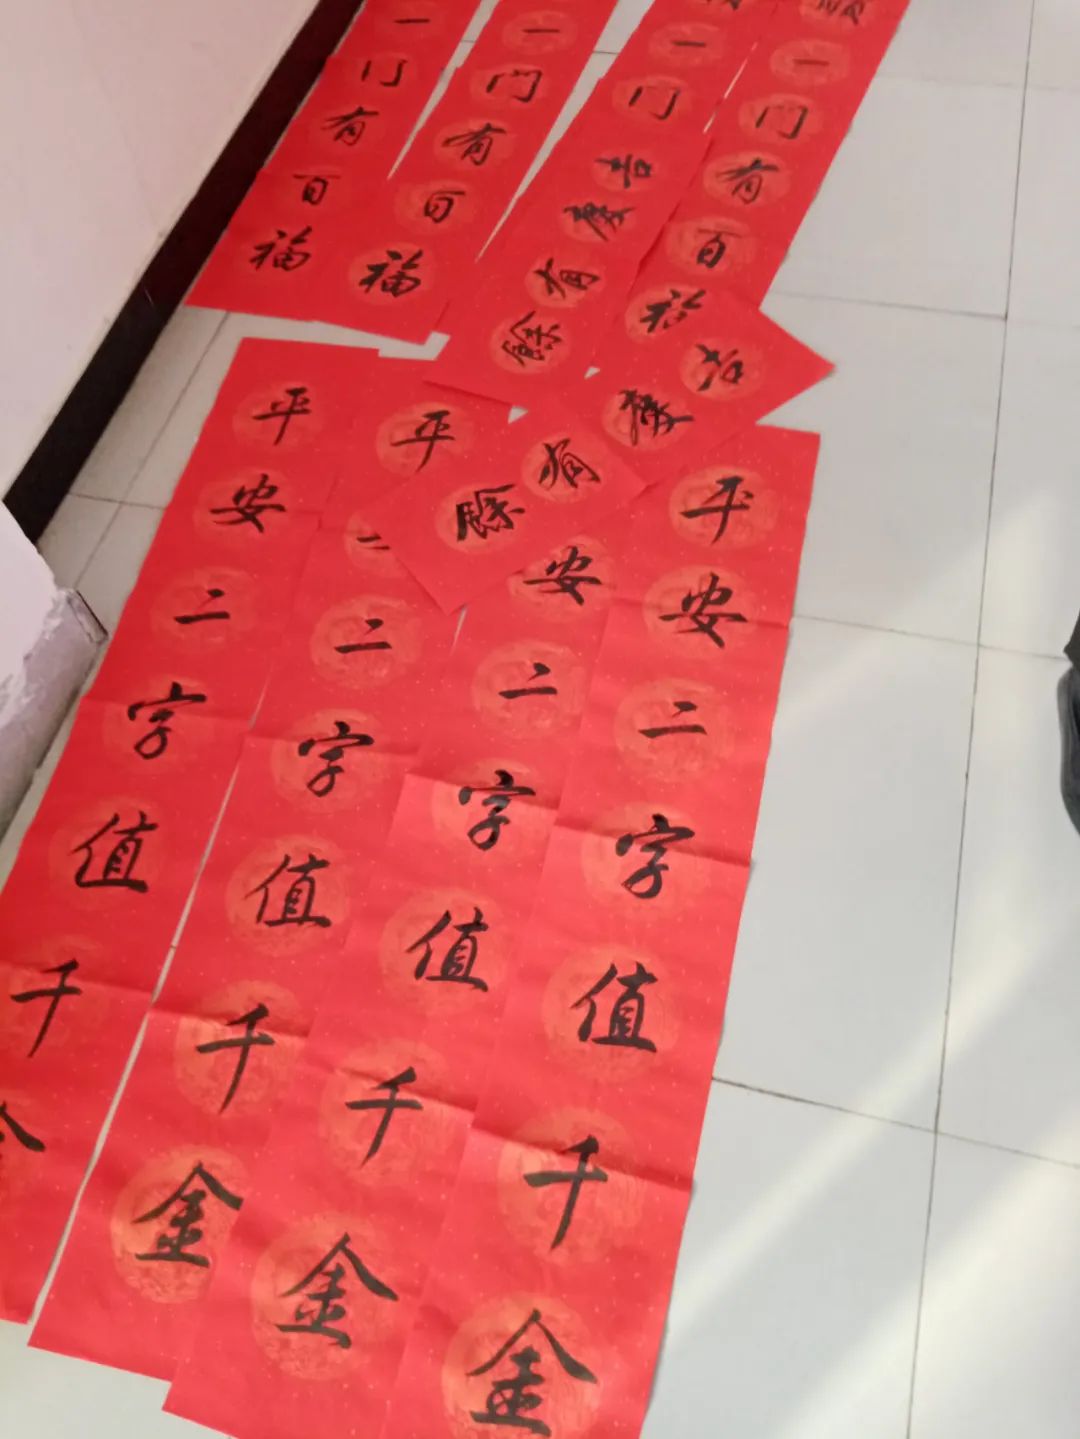 一门有百福
一門有百福
一门
吉慶有餘
一门有百福
吉慶有餘
平安二字值千金
平二字值千金
安二字值千金
平安二字值千金